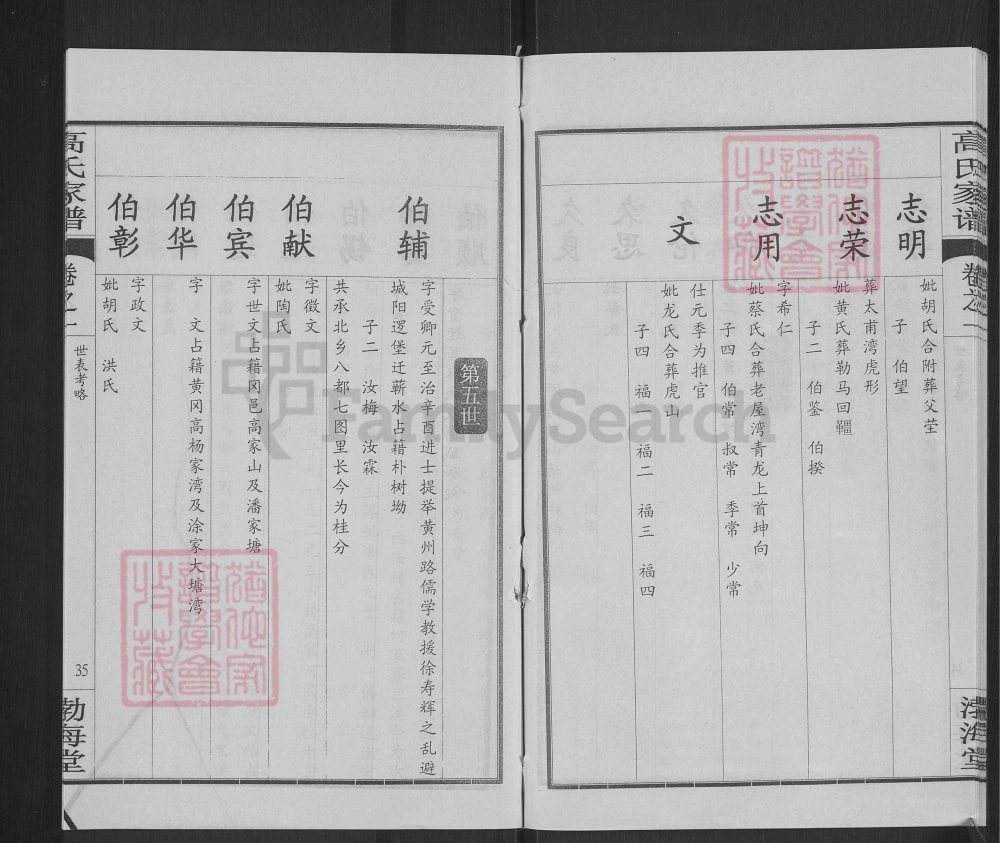 高氏家谱
卷之一
渤海堂
志明
妣胡氏合附葬父茔
子 伯望
志荣
葬太甫湾虎形
妣黄氏葬勒马回韁
子二 伯鉴 伯揆
志用
字希仁
妣蔡氏合葬老屋湾青龙上首坤向
子四 伯常 叔常 季常 少常
文
仕元季为推官
妣龙氏合葬虎山
子四 福一 福二 福三 福四
第五世
伯辅
字受卿元至治辛酉进士提举黄州路儒学教援徐寿辉之乱避
城阳逻堡迁蕲水占籍朴树坳
子二 汝梅 汝霖
共承北乡八都七图里长今为桂分
伯献
字徵文
妣陶氏
伯宾
字世文占籍冈邑高家山及潘家塘
伯华
字 文占籍黄冈高杨家湾及涂家大塘湾
伯彰
字政文
妣胡氏 洪氏
高氏家谱
卷之一
世表考略
35
勃海堂
FamilySearch